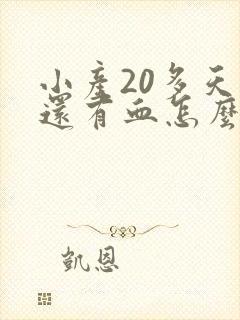 小產20多天
還有血怎麼
凱恩